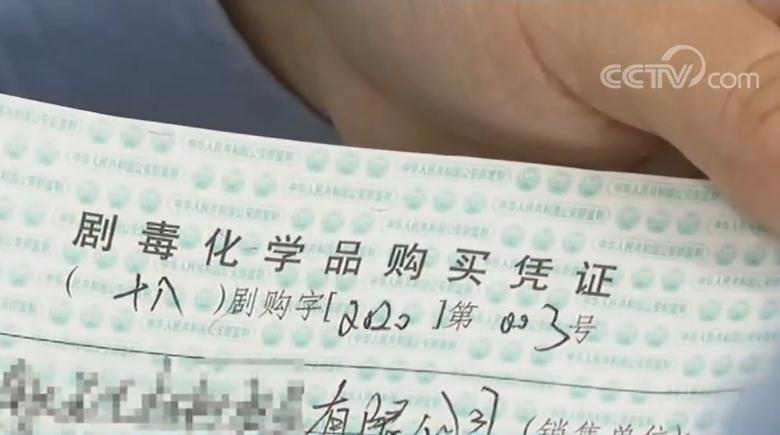 CCTV.com
剧毒化学品购买凭证
(十八)剧购字[2020]第003号
有限公司(销售单位):